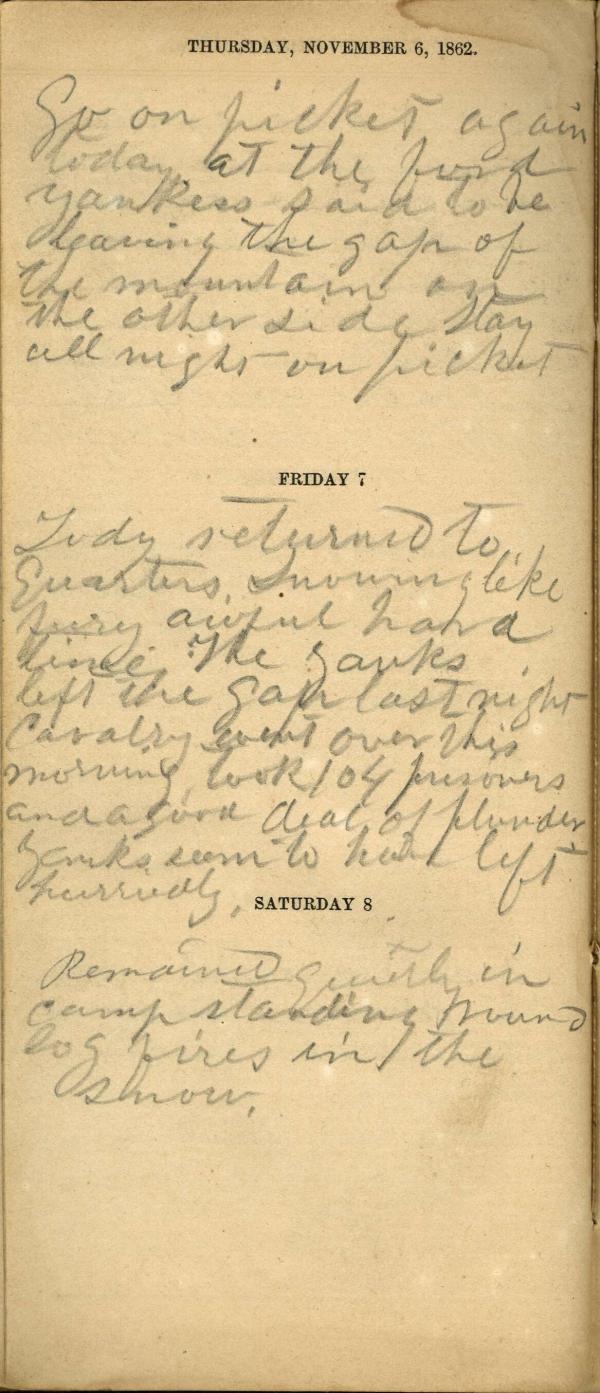 THURSDAY, NOVEMBER 6, 1862.
Go on picket again
today at the ford
yankees said to be
leaving the gap of
the mountain on
the other side Stay
all night on picket
FRIDAY 7
Tody returned to
Quarters, Snowing like
fury awful hard
time, The yanks
left the Gap last night
Cavalry went over this
morning, took 104 prisoners
and a good deal of plunder
Yanks seem to have left
hurriedly,
SATURDAY 8
Remained quietly in
camp standing round
log fires in the
snow,